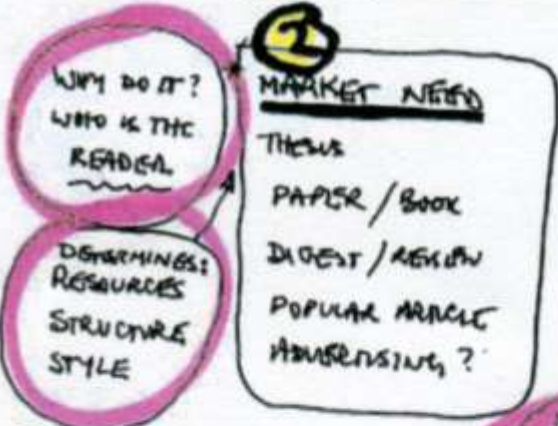 2
WHY DO IT?
WHO IS THE
READER
DETERMINES:
RESOURCES
STRUCTURE
STYLE
MARKET NEED
THESIS
PAPER / BOOK
DIGEST / REVIEW
POPULAR ARTICLE
ADVERTISING ?